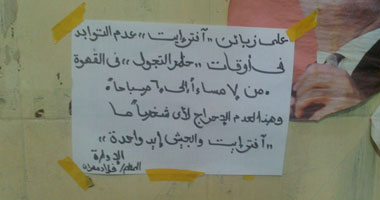 على زبائن "آفتر إيت" عدم التواجد
فى أوقات "حظر التجول" فى القهوة
من ٧ مساءاً الى ٦ صباحاً.
وهذا لعدم الإحراج لأى شخص ما
"آفتر إيت والجيش إيد واحدة"
الإدارة
المعلم /